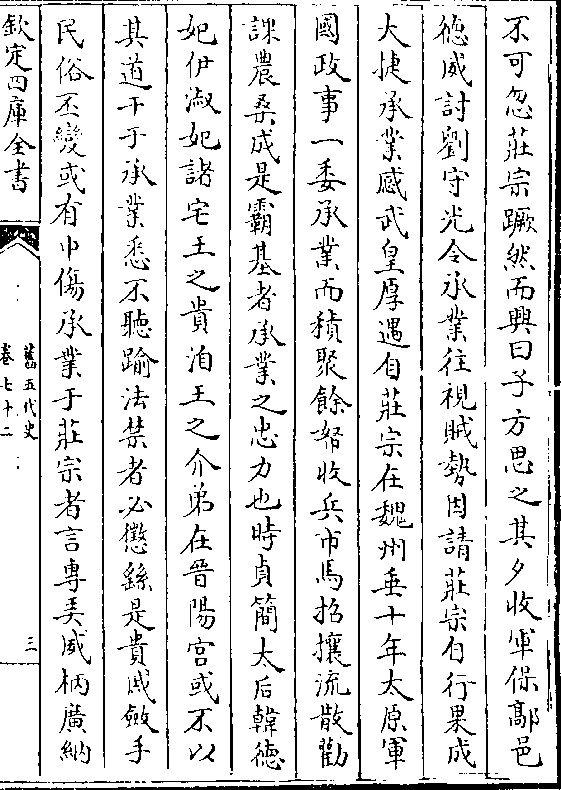 不可忽莊宗蹶然而興曰予方思之其夕收軍保鄗邑
德威討劉守光令承業往視賊勢因請莊宗自行果成
大捷承業感武皇厚遇自莊宗在魏州垂十年太原軍
國政事一委承業而積聚餘帑收兵市馬招攘流散勸
課農桑成是霸基者承業之忠力也時貞簡太后韓德
妃伊淑妃諸宅王之貴洎王之介弟在晉陽宮或不以
其道干于承業悉不聽踰法禁者必懲繇是貴戚斂手
民俗丕變或有中傷承業于莊宗者言專弄威柄廣納
欽定四庫全書
舊五代史
卷七十二
三